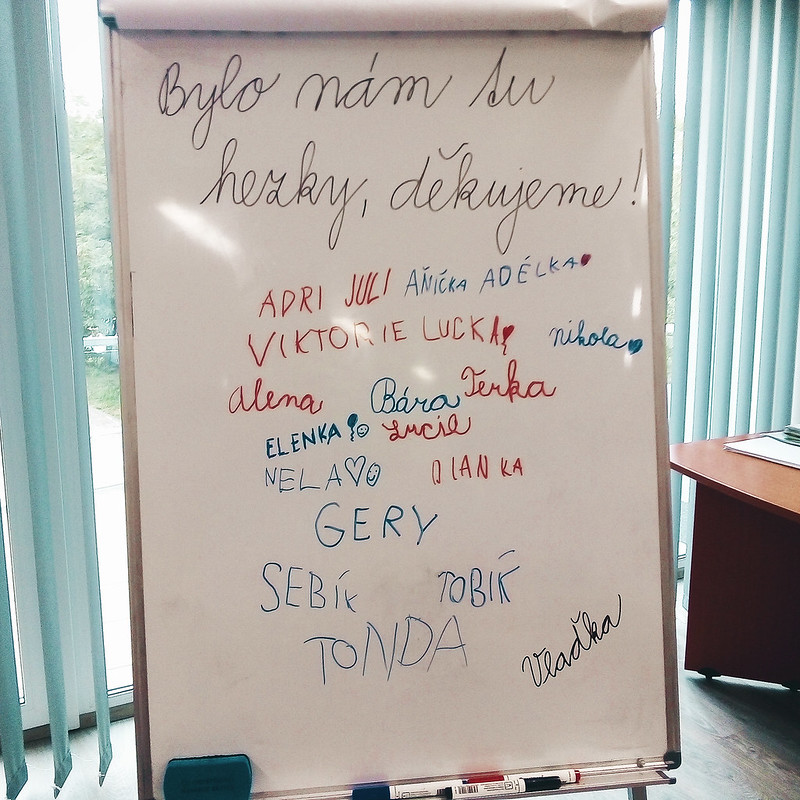 Bylo nám tu
hezky, děkujeme!
ADRI JULI AŇIČKA ADÉLKA
VIKTORIE LUCKA nikola
Alena Bára Terka
ELENKA Lucie
NELA DIANKA
GERY
SEBÍK TOBÍK
TONDA Vlaďka